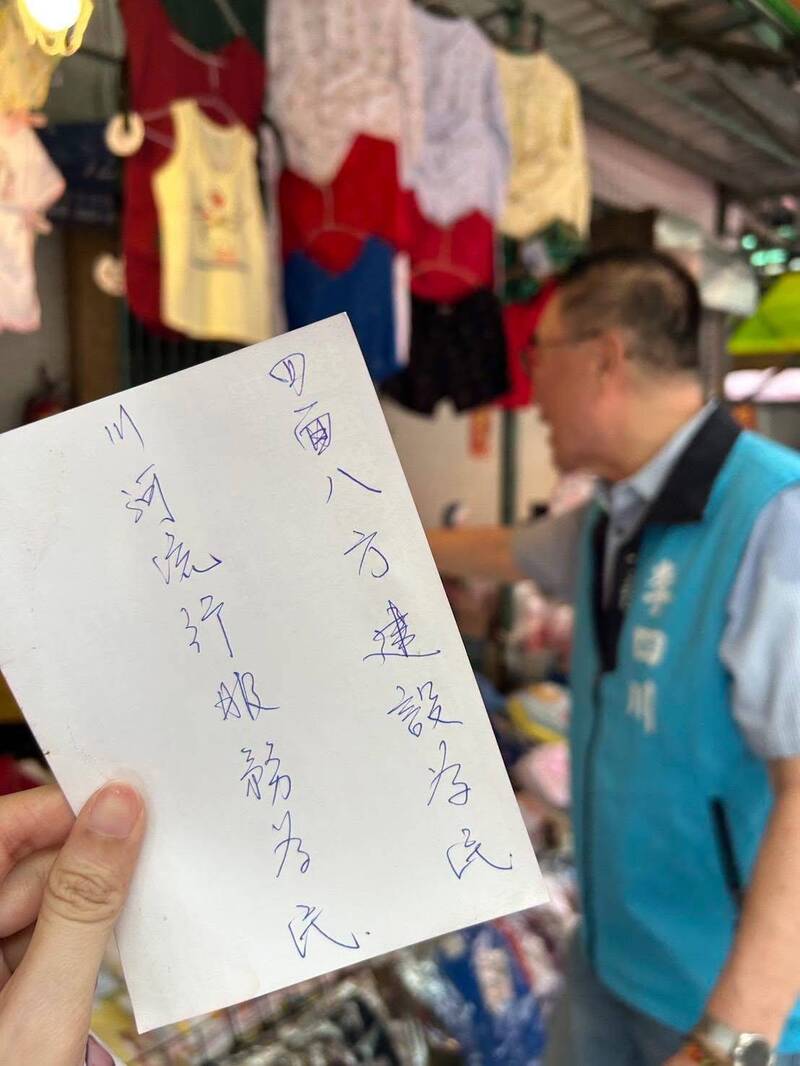 四面八方建設為民
川河流行服務為民.
李四川